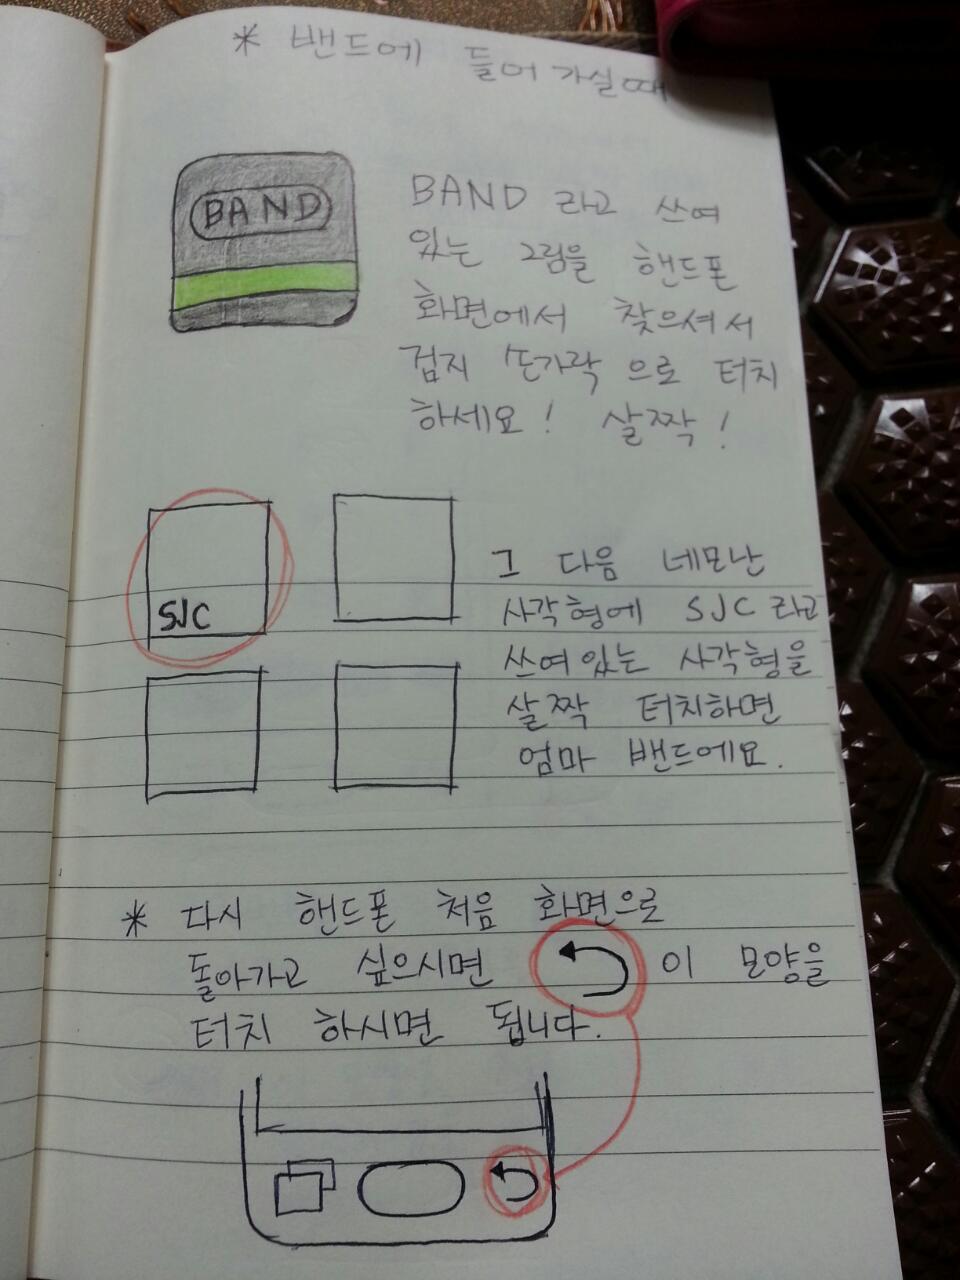 * 밴드에 들어가실때
BAND
BAND 라고 쓰여
있는 그림을 핸드폰
화면에서 찾으셔서
검지 손가락 으로 터치
하세요! 살짝!
SJC
그 다음 네모난
사각형에 SJC 라고
쓰여있는 사각형을
살짝 터치하면
엄마 밴드에요.
* 다시 핸드폰 처음 화면으로
돌아가고 싶으시면 이 모양을
터치 하시면 됩니다.